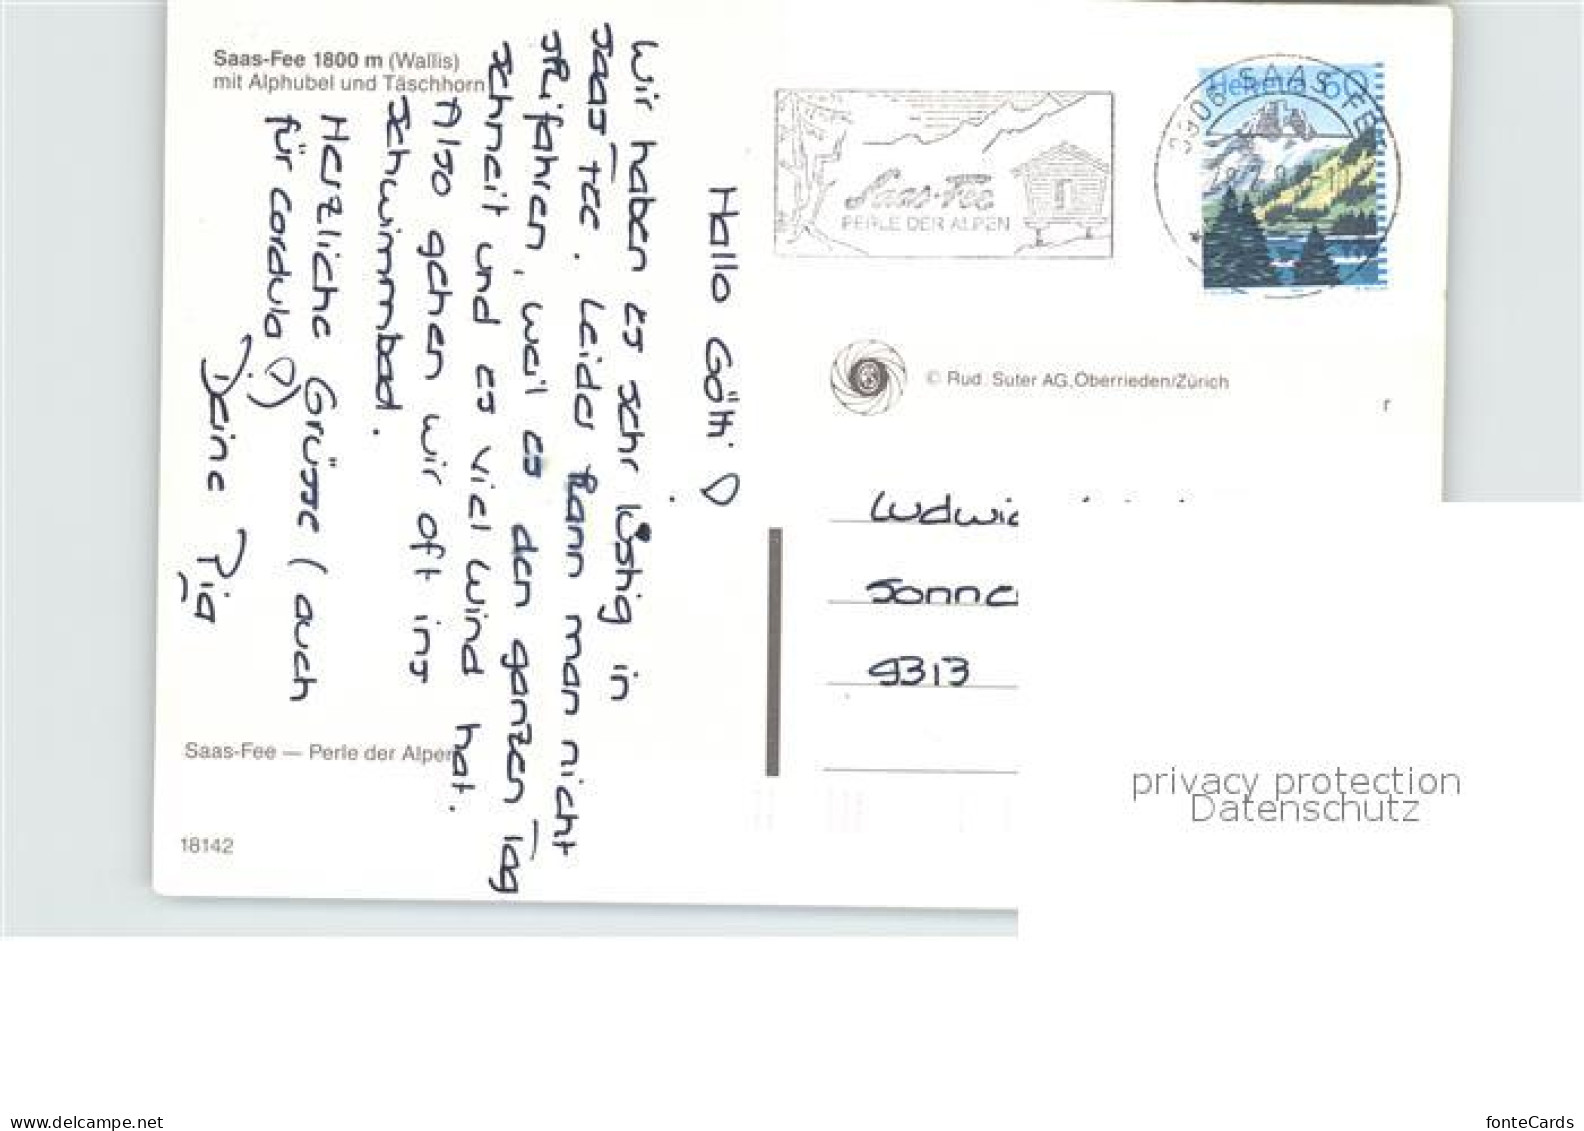 Saas-Fee 1800 m (Wallis)
mit Alphubel und Täschhorn
Hallo Götti
Wir haben es sehr lustig in
Saas Fee. Leider kann man nicht
skifahren, weil es den ganzen Tag
schneit und es viel Wind hat.
Also gehen wir oft ins
Schwimmbad.
Herzliche Grüsse (auch
für Cordula)
Deine Pia
Saas-Fee — Perle der Alpen
18142
Saas-Fee
PERLE DER ALPEN
3906 SAAS-FEE
Helvetia
© Rud. Suter AG, Oberrieden/Zürich
r
Ludwig
Sonne
9313
privacy protection
Datenschutz
www.delcampe.net
fonteCards